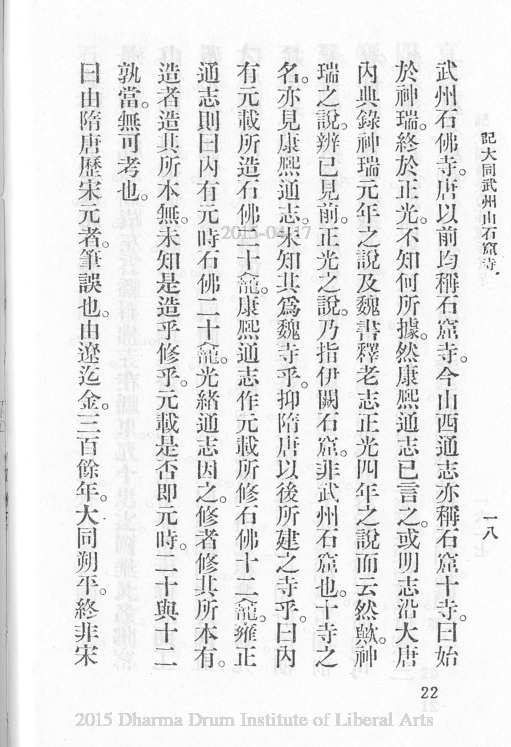 記大同武州山石窟寺
一八
武州石佛寺。唐以前均稱石窟寺。今山西通志亦稱石窟十寺。曰始
於神瑞。終於正光。不知何所據。然康熙通志已言之。或明志沿大唐
內典錄神瑞元年之說及魏書釋老志正光四年之說而云然歟。神
瑞之說。辨已見前。正光之說。乃指伊闕石窟。非武州石窟也。十寺之
名。亦見康熙通志。未知其爲魏寺乎。抑隋唐以後所建之寺乎。曰內
有元載所造石佛二十龕。康熙通志作元載所修石佛十二龕。雍正
通志則曰內有元時石佛二十龕。光緒通志因之。修者修其所本有。
造者造其所本無。未知是造乎修乎。元載是否即元時。二十與十二
孰當。無可考也。
曰由隋唐歷宋元者。筆誤也。由遼迄金。三百餘年。大同朔平。終非宋
22
2015-04-17
2015 Dharma Drum Institute of Liberal Arts